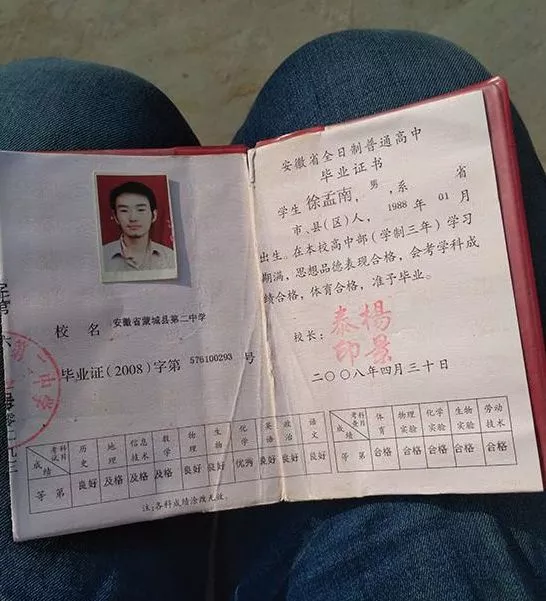 校 名 安徽省蒙城县第二中学
毕业证(2008)字第 576100293 号
考试科目 历史 地理 信息技术 数学 物理 生物 化学 英语 政治 语文
成绩
等 第 良好 及格 及格 及格 良好 良好 优秀 良好 良好 良好
注:各科成绩涂改无效。
安徽省全日制普通高中
毕业证书
学生 徐孟南，男，系 省
市、县(区)人，1988 年 01 月
出生。在本校高中部(学制三年)学习
期满，思想品德表现合格，会考学科成
绩合格，体育合格，准予毕业。
校长: 楊景泰印
二〇〇八年四月三十日
考查科目 体育 物理实验 化学实验 生物实验 劳动技术
成绩
等 第 合格 合格 合格 合格 合格